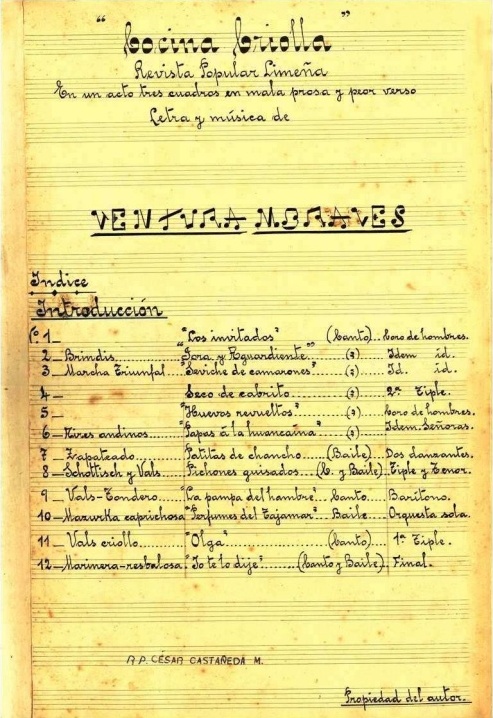 "Cocina Criolla"
Revista Popular Limeña
En un acto tres cuadros en mala prosa y peor verso
Letra y música de
VENTURA MORALES
Indice
Introducción
Nº 1_ "Los invitados" (Canto) Coro de hombres.
2_ Brindis "Jora y Aguardiente" (») Idem id.
3_ Marcha Triunfal "Seviche de camarones" (») Id. id.
4_ Seco de cabrito (») 2ª Tiple.
5_ "Huevos revueltos" (») Coro de hombres.
6_ Aires andinos "Papas á la huancaina" (») Idem. Señoras.
7_ Zapateado Patitas de chancho (Baile) Dos danzantes.
8_ Schottisch y Vals Pichones guisados (C. y Baile) Tiple y Tenor.
9_ Vals-Tondero "La pampa del hambre" Canto Barítono.
10_ Mazurka caprichosa "Perfumes del Tajamar" Baile Orquesta sola.
11_ Vals criollo "Olga" (Canto) 1ª Tiple.
12_ Marinera-resbalosa "Yo te lo dije" (Canto y Baile) Final.
R.P. CÉSAR CASTAÑEDA M.
Propiedad del autor.